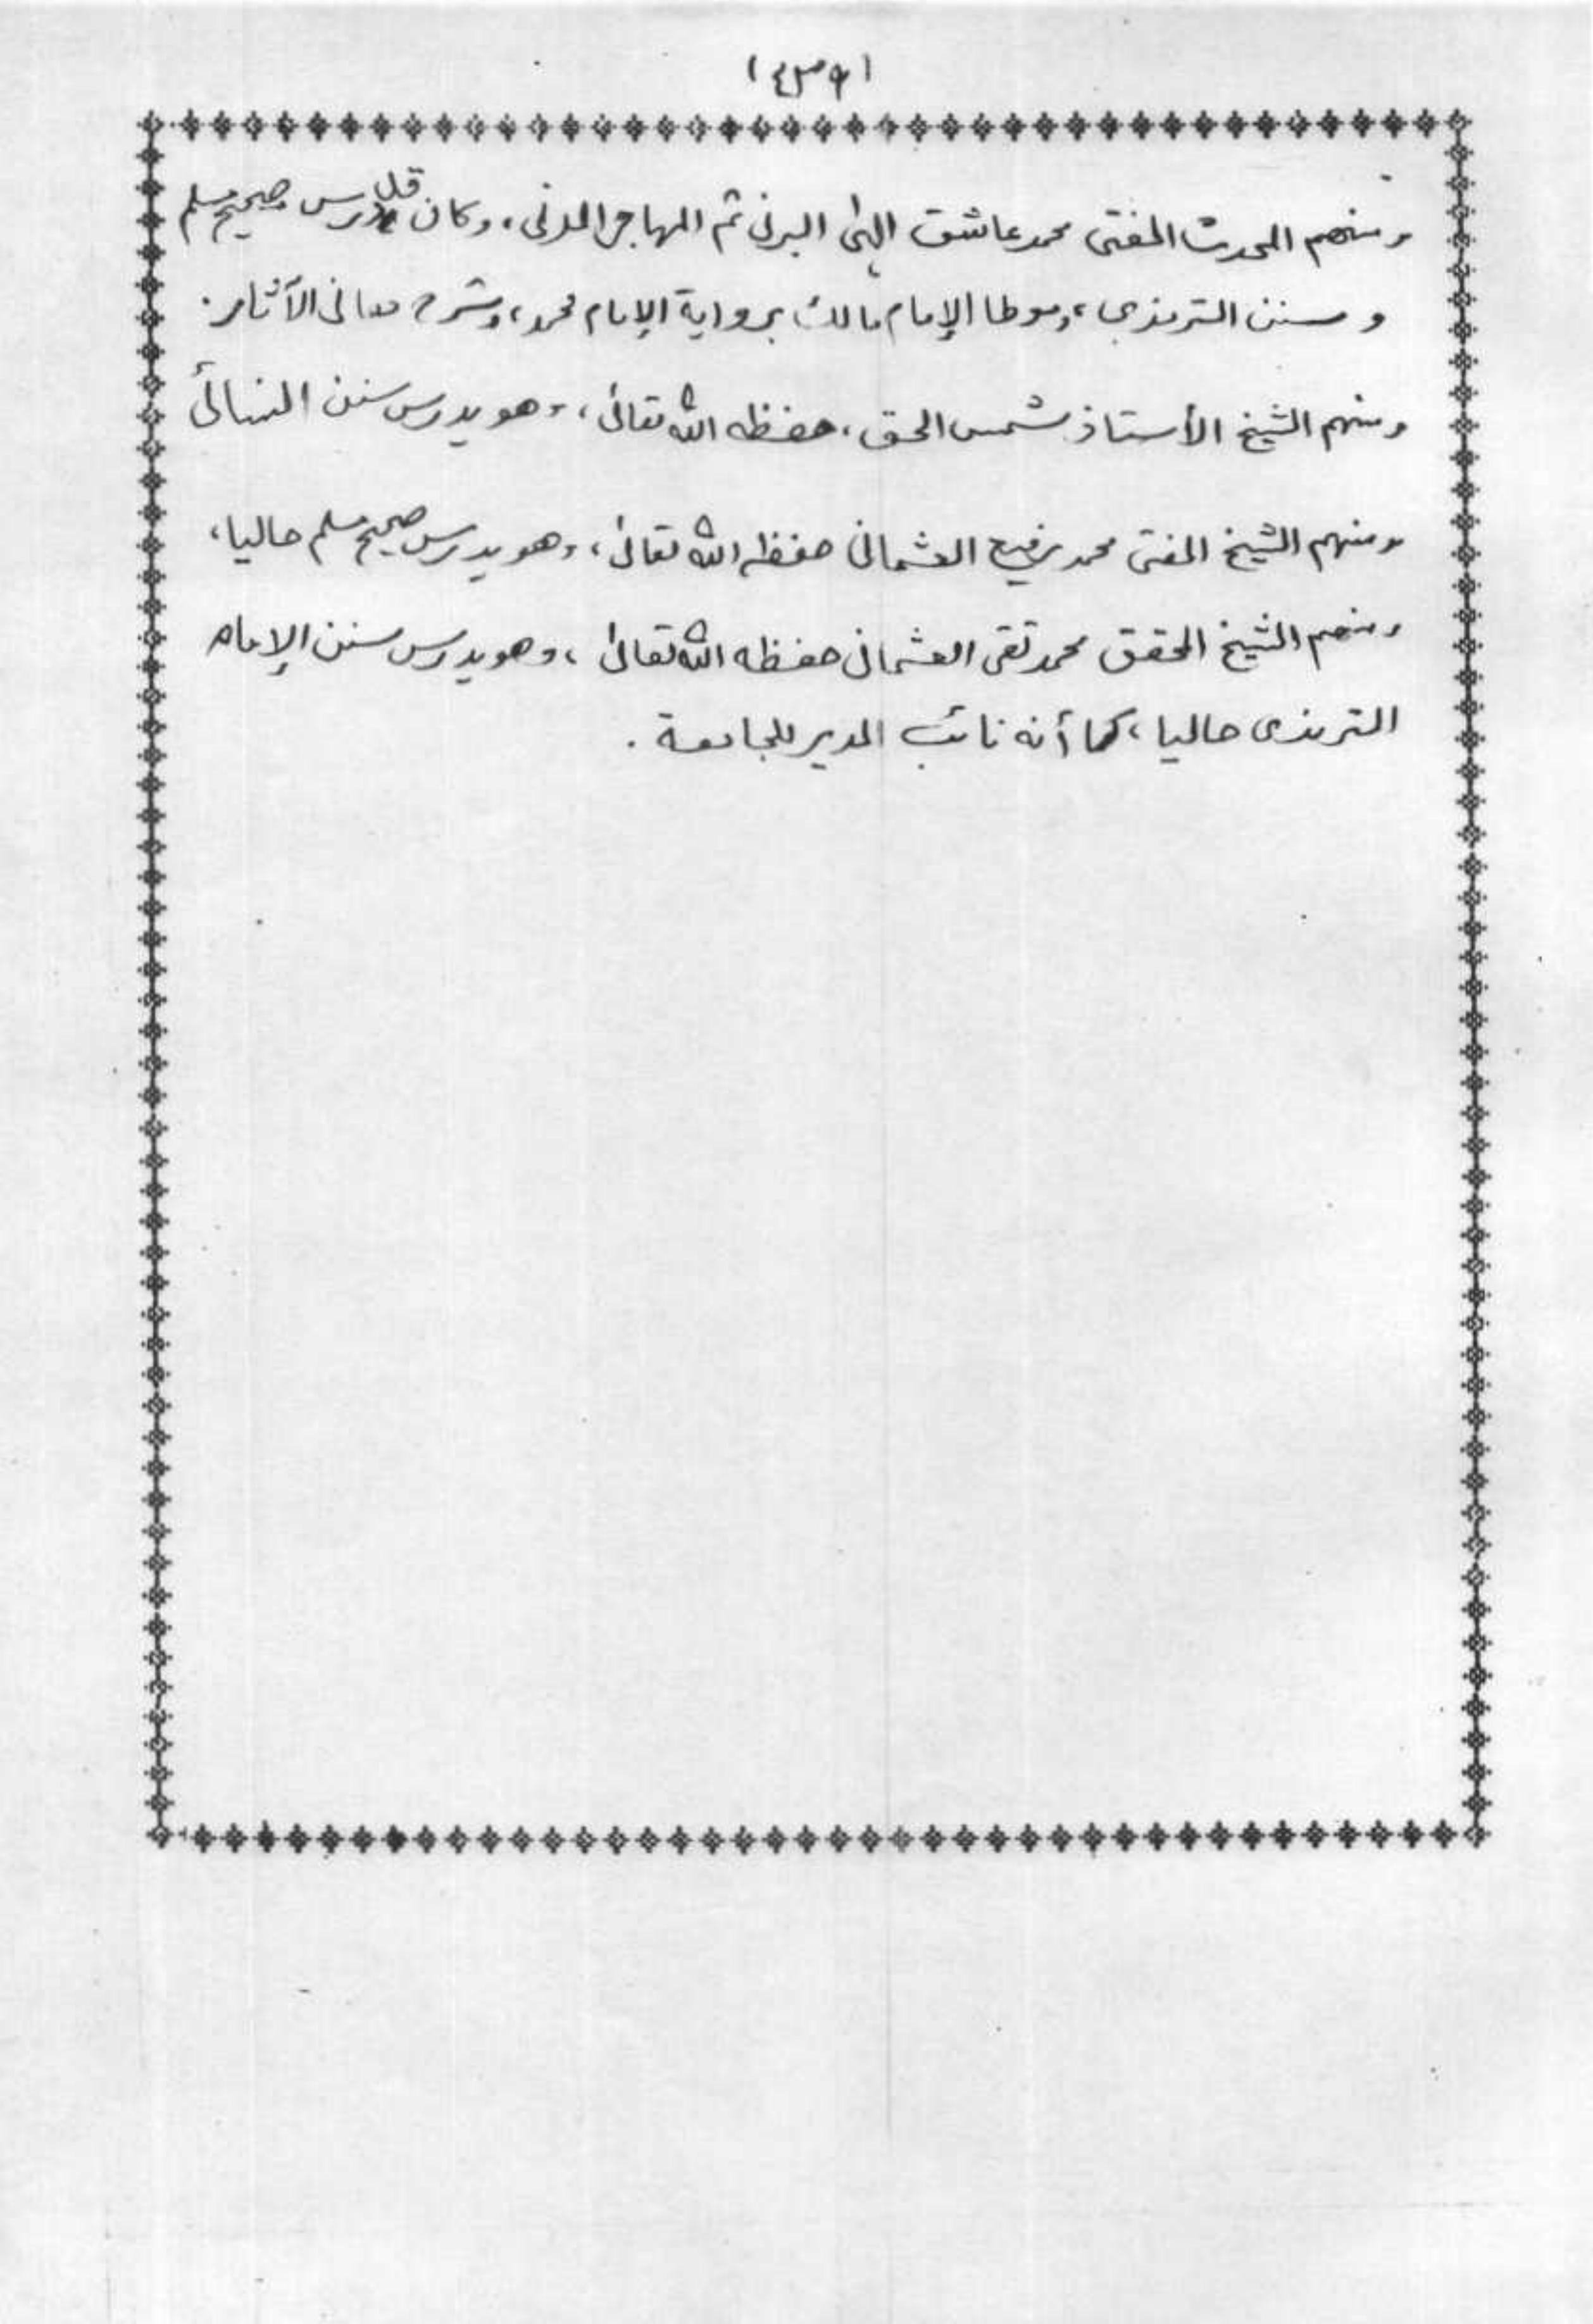 ومنهم المحدث المفتى محمد عاشق إلهى البرنى ثم المهاجر المدنى، وكان قد درس صحيح مسلم
وسنن الترمذى، وموطا الإمام مالك برواية الإمام محمد، وشرح معانى الآثار.
ومنهم الشيخ الأستاذ شمس الحق، حفظه الله تعالىٰ، وهو يدرس سنن النسائى
ومنهم الشيخ المفتى محمد رفيع العثمانى حفظه الله تعالىٰ، وهو يدرس صحيح مسلم حاليا،
ومنهم الشيخ المحقق محمد تقى العثمانى حفظه الله تعالىٰ، وهو يدرس سنن الإمام
الترمذى حاليا، كما أنه نائب المدير للجامعة.